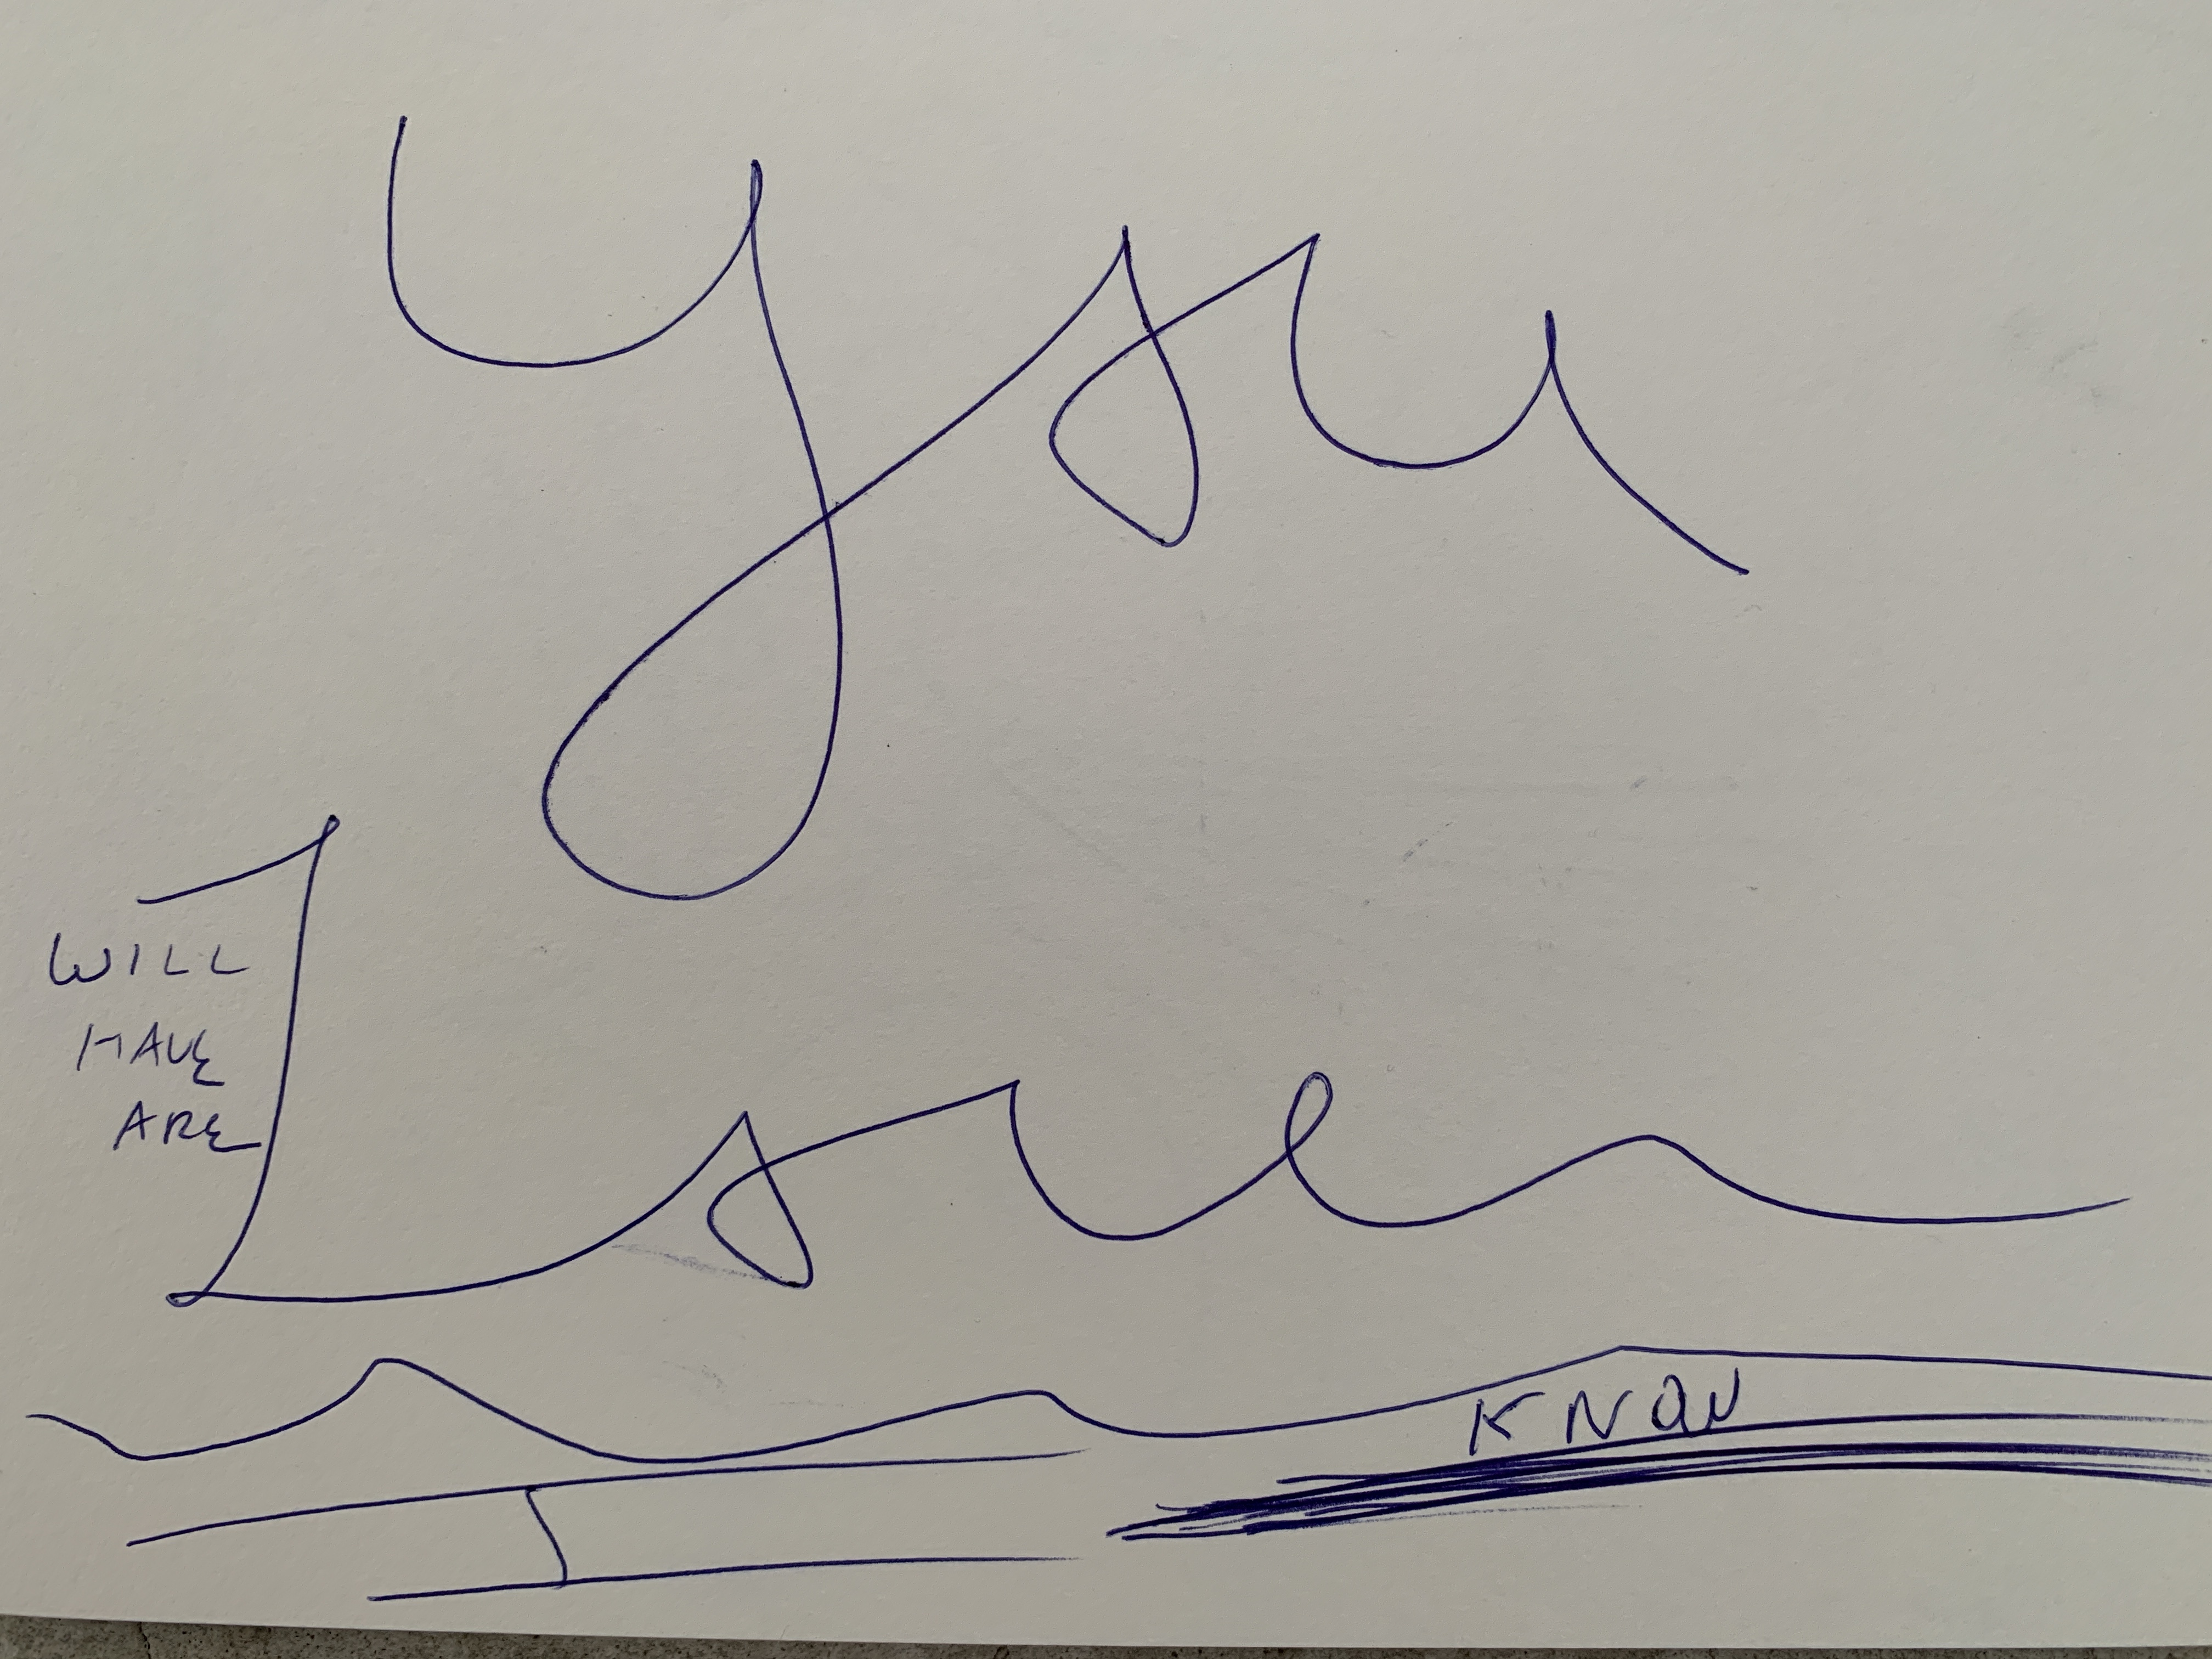 You
WILL
HAVE
ARE
Loven
I
KNOW